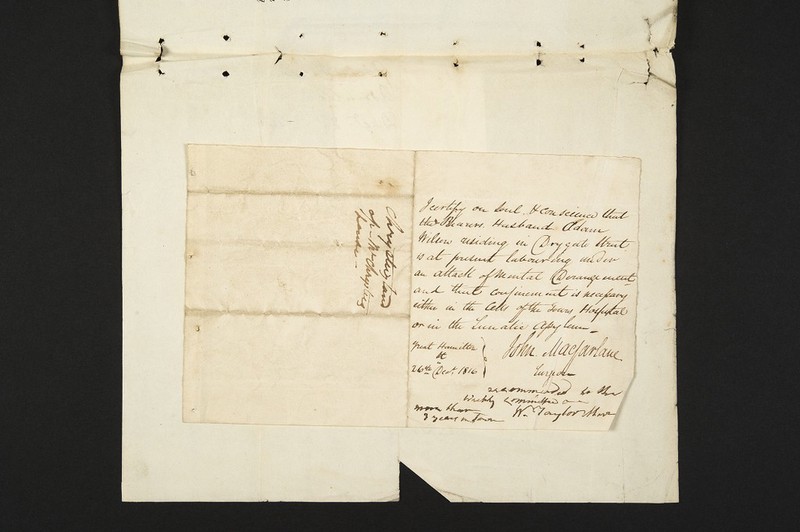 I certify on Soul & Conscience that
the Bearers Husband Adam
Wilson residing in Drygate Street
is at present labouring under
an attack of Mental Derangement
and that confinement is necessary
either in the Cells of the Towns Hospital
or in the Lunatic Asylum
Great Hamilton
St
26th Decr. 1816
John Macfarlane
Surgeon
recommended to the
weekly committee
Wm Taylor
more than
3 years in Town